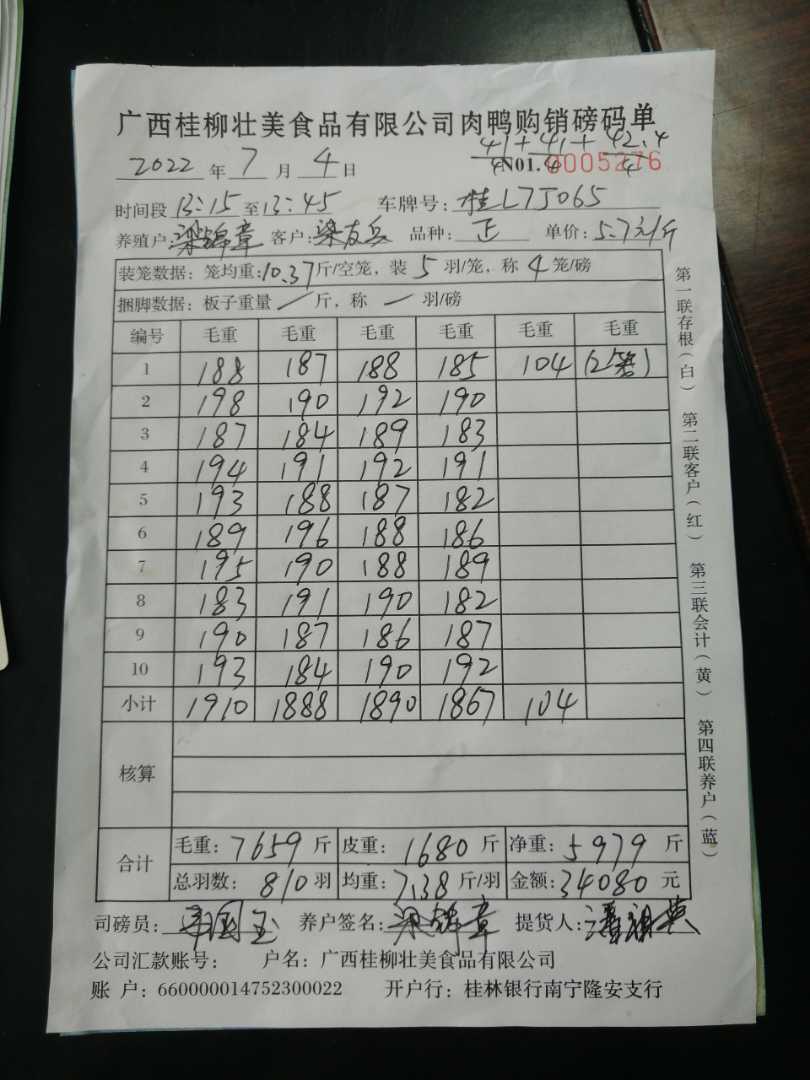 广西桂柳壮美食品有限公司肉鸭购销磅码单
41/4+41/4+42.4/4
2022年7月4日 N01.0005276
时间段13:15至13:45 车牌号:桂L75065
养殖户:梁锦章 客户:梁友兵 品种:正 单价:5.7元/斤
装笼数据:笼均重:10.37斤/空笼,装5羽/笼,称4笼/磅
捆脚数据:板子重量/斤,称一羽/磅
编号 毛重 毛重 毛重 毛重 毛重 毛重
1 188 187 188 185 104 (2笼)
2 198 190 192 190
3 187 184 189 183
4 194 191 192 191
5 193 188 187 182
6 189 196 188 186
7 195 190 188 189
8 183 191 190 182
9 190 187 186 187
10 193 184 190 192
小计 1910 1888 1890 1867 104
核算
合计 毛重:7659斤 皮重:1680斤 净重:5979斤
总羽数:810羽 均重:7.38斤/羽 金额:34080元
司磅员: 国玉 养户签名:梁锦章 提货人:潘 英
公司汇款账号: 户名:广西桂柳壮美食品有限公司
账 户:660000014752300022 开户行:桂林银行南宁隆安支行
第一联存根(白) 第二联客户(红) 第三联会计(黄) 第四联养户(蓝)